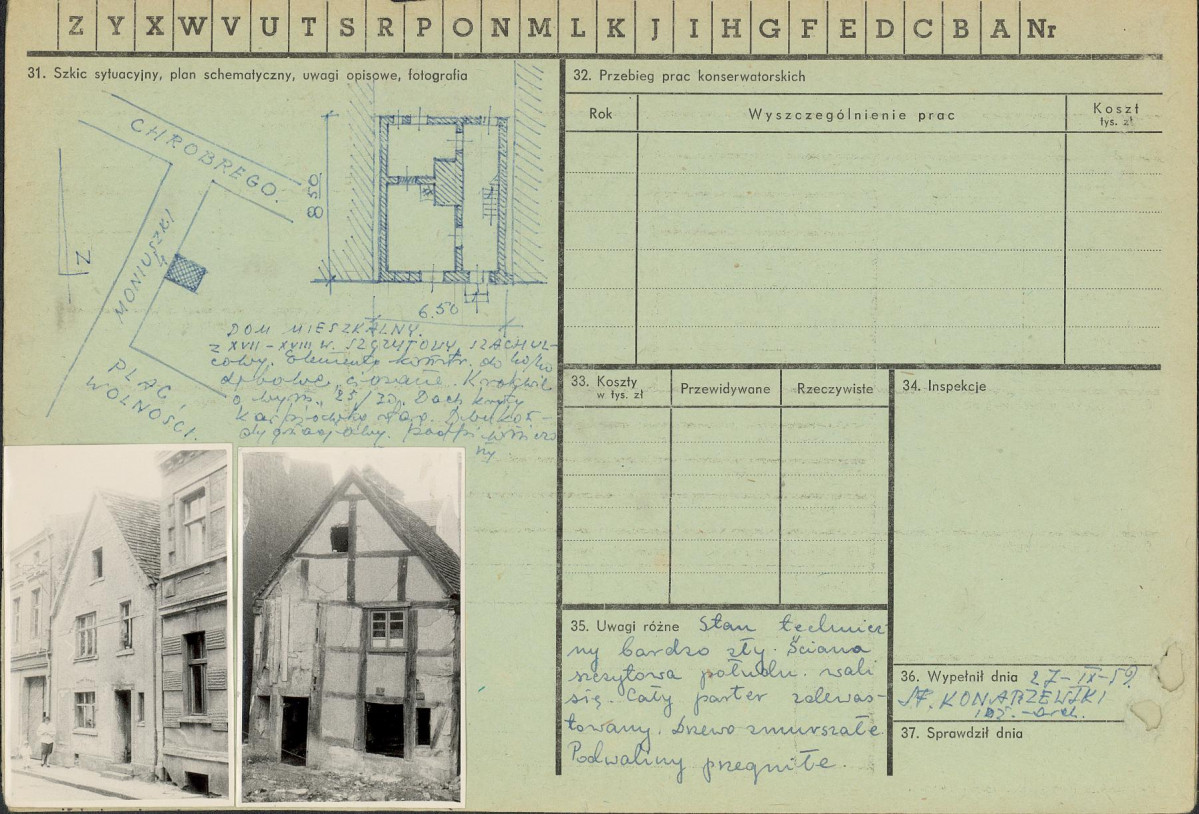 Z Y X W V U T S R P O N M L K J I H G F E D C B A Nr
31. Szkic sytuacyjny, plan schematyczny, uwagi opisowe, fotografia
CHROBREGO.
MONIUSZKI
4
N
PLAC
WOLNOŚCI.
8.50
6.50
DOM MIESZKALNY.
Z XVII-XVIII W. SZCZYTOWY, SZACHUL-
cowy. Elementy konstr.
dębowe, ciosane. Krokwie
o wym. 25/20. Dach kryty
Karpiówką
ny
32. Przebieg prac konserwatorskich
Rok
Wyszczególnienie prac
Koszt
tys. zł
33. Koszty
w tys. zł
Przewidywane
Rzeczywiste
34. Inspekcje
35. Uwagi różne Stan technicz
ny bardzo zły. Ściana
szczytowa połudn. wali
się. Cały parter zdewas-
towany. Drzewo zmurszałe
Podwaliny przegniłe.
36. Wypełnił dnia 27-IX-59.
ST. KONARZEWSKI
inż.-arch.
37. Sprawdził dnia